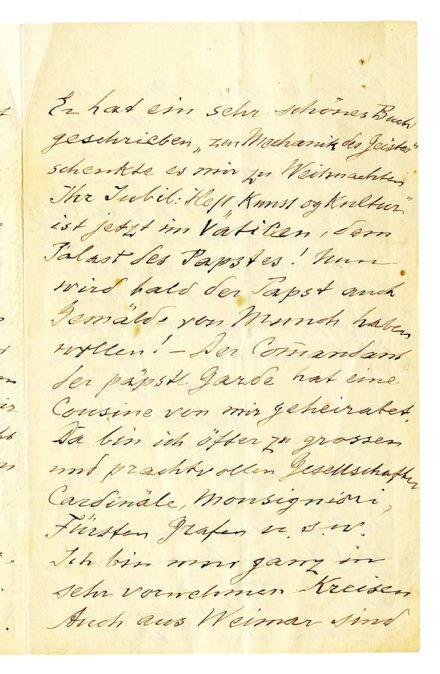 Er hat ein sehr schönes Buch
geschrieben „zur Mechanik des Geistes"
schenkte es mir zu Weihnachten
Ihr Jubil: Heft Kunst og Kultur"
ist jetzt im Vatican, dem
Palast des Papstes! Nun
wird bald der Papst auch
Gemälde von Munch haben
wollen! – Der Comandant
der päpstl Garde hat eine
Cousine von mir geheiratet.
Da bin ich öfter zu grossen
und prachtvollen Gesellschaften
Cardinäle, Monsignori,
Fürsten Grafen u. s. w.
Ich bin nun ganz in
sehr vornehmen Kreisen
Auch aus Weimar sind